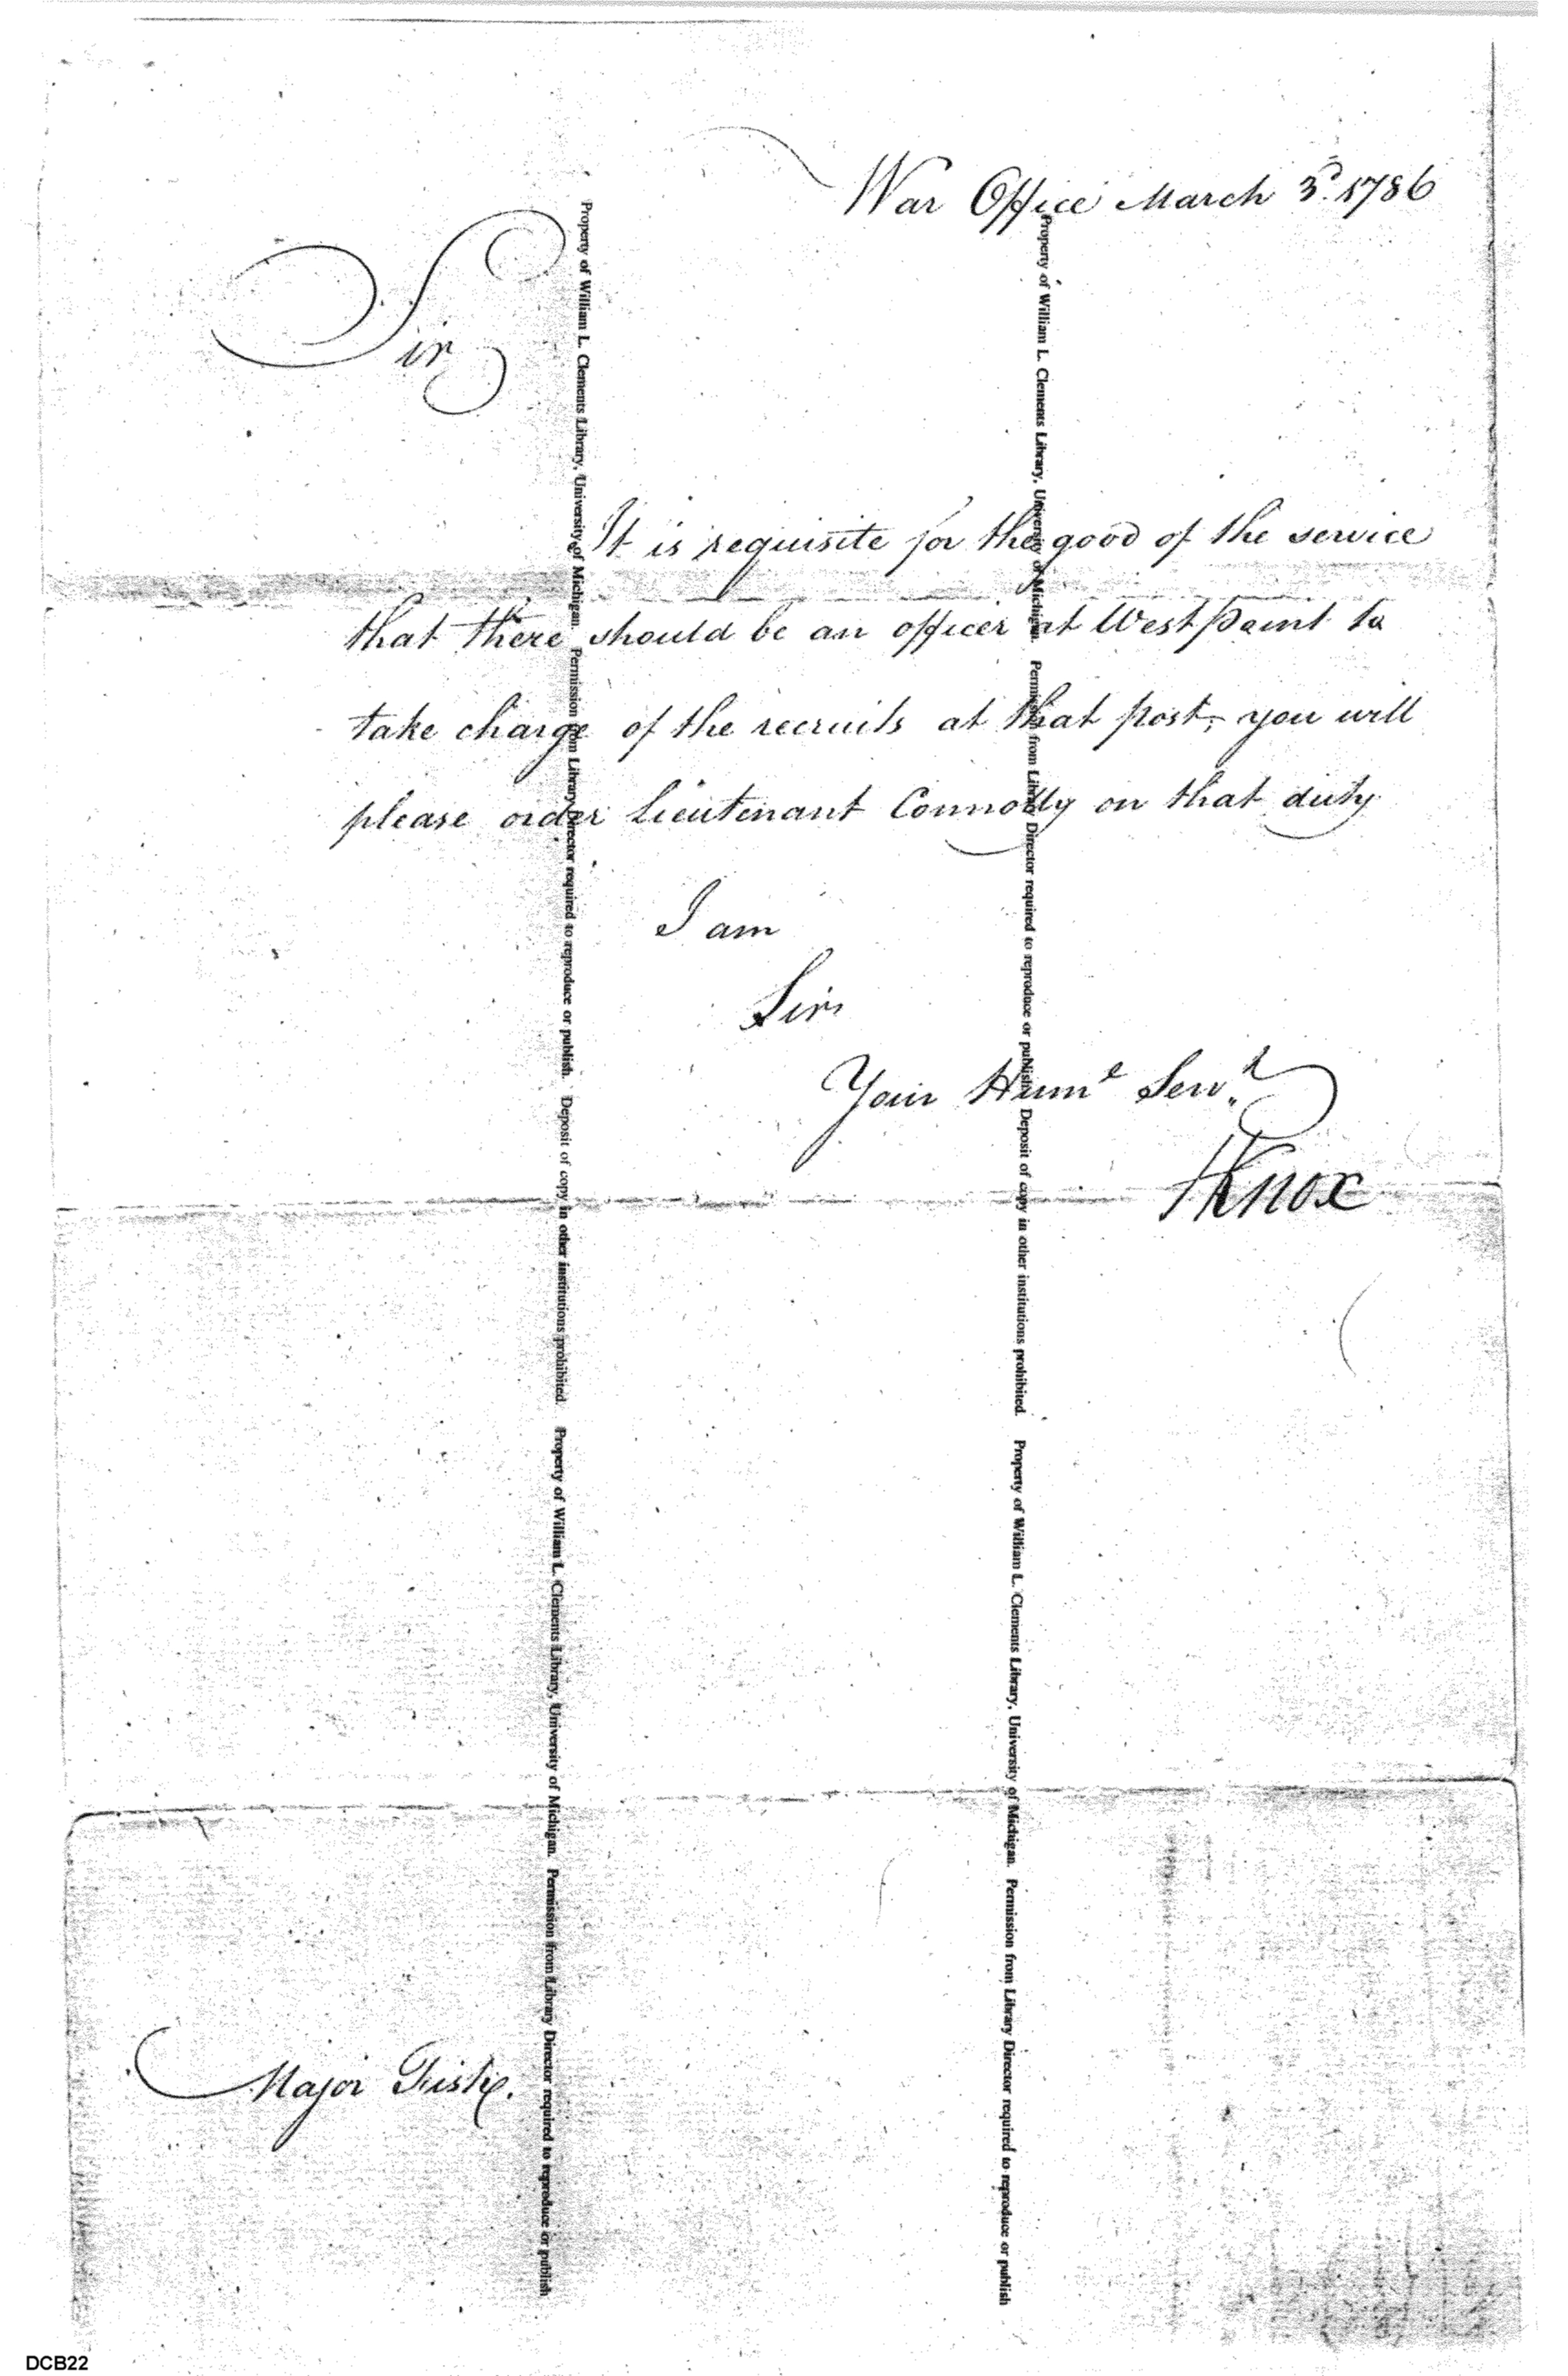 War Office March 3d. 1786
Sir
It is requisite for the good of the service
that there should be an officer at West point to
take charge of the recruits at that post, you will
please order Lieutenant Connolly on that duty
I am
Sir
Your Humle Servt
HKnox
Major Fish.
Property of William L. Clements Library, University of Michigan. Permission from Library Director required to reproduce or publish. Deposit of copy in other institutions prohibited. Property of William L. Clements Library, University of Michigan. Permission from Library Director required to reproduce or publish
Property of William L. Clements Library, University of Michigan. Permission from Library Director required to reproduce or publish. Deposit of copy in other institutions prohibited. Property of William L. Clements Library, University of Michigan. Permission from Library Director required to reproduce or publish
DCB22